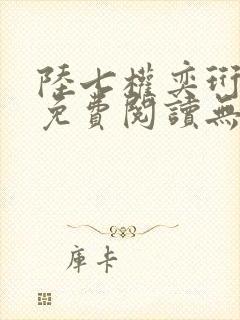 陸七權奕珩
免費閱讀無
庫卡